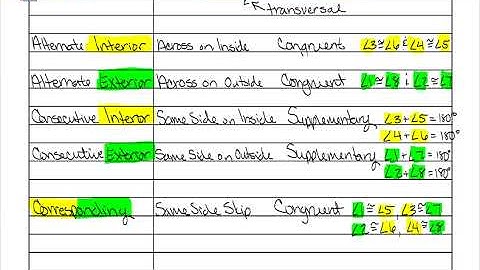 transversal
Alternate Interior Across on Inside Congruent ∠3≅∠6 ; ∠4≅∠5
Alternate Exterior Across on Outside Congruent ∠1≅∠8 ; ∠2≅∠7
Consecutive Interior Same Side on Inside Supplementary, ∠3+∠5=180°
∠4+∠6=180°
Consecutive Exterior Same Side on Outside Supplementary ∠1+∠7=180°
∠2+∠8=180°
Corresponding Same Side Skip Congruent ∠1≅∠5, ∠3≅∠7
∠2≅∠6, ∠4≅∠8